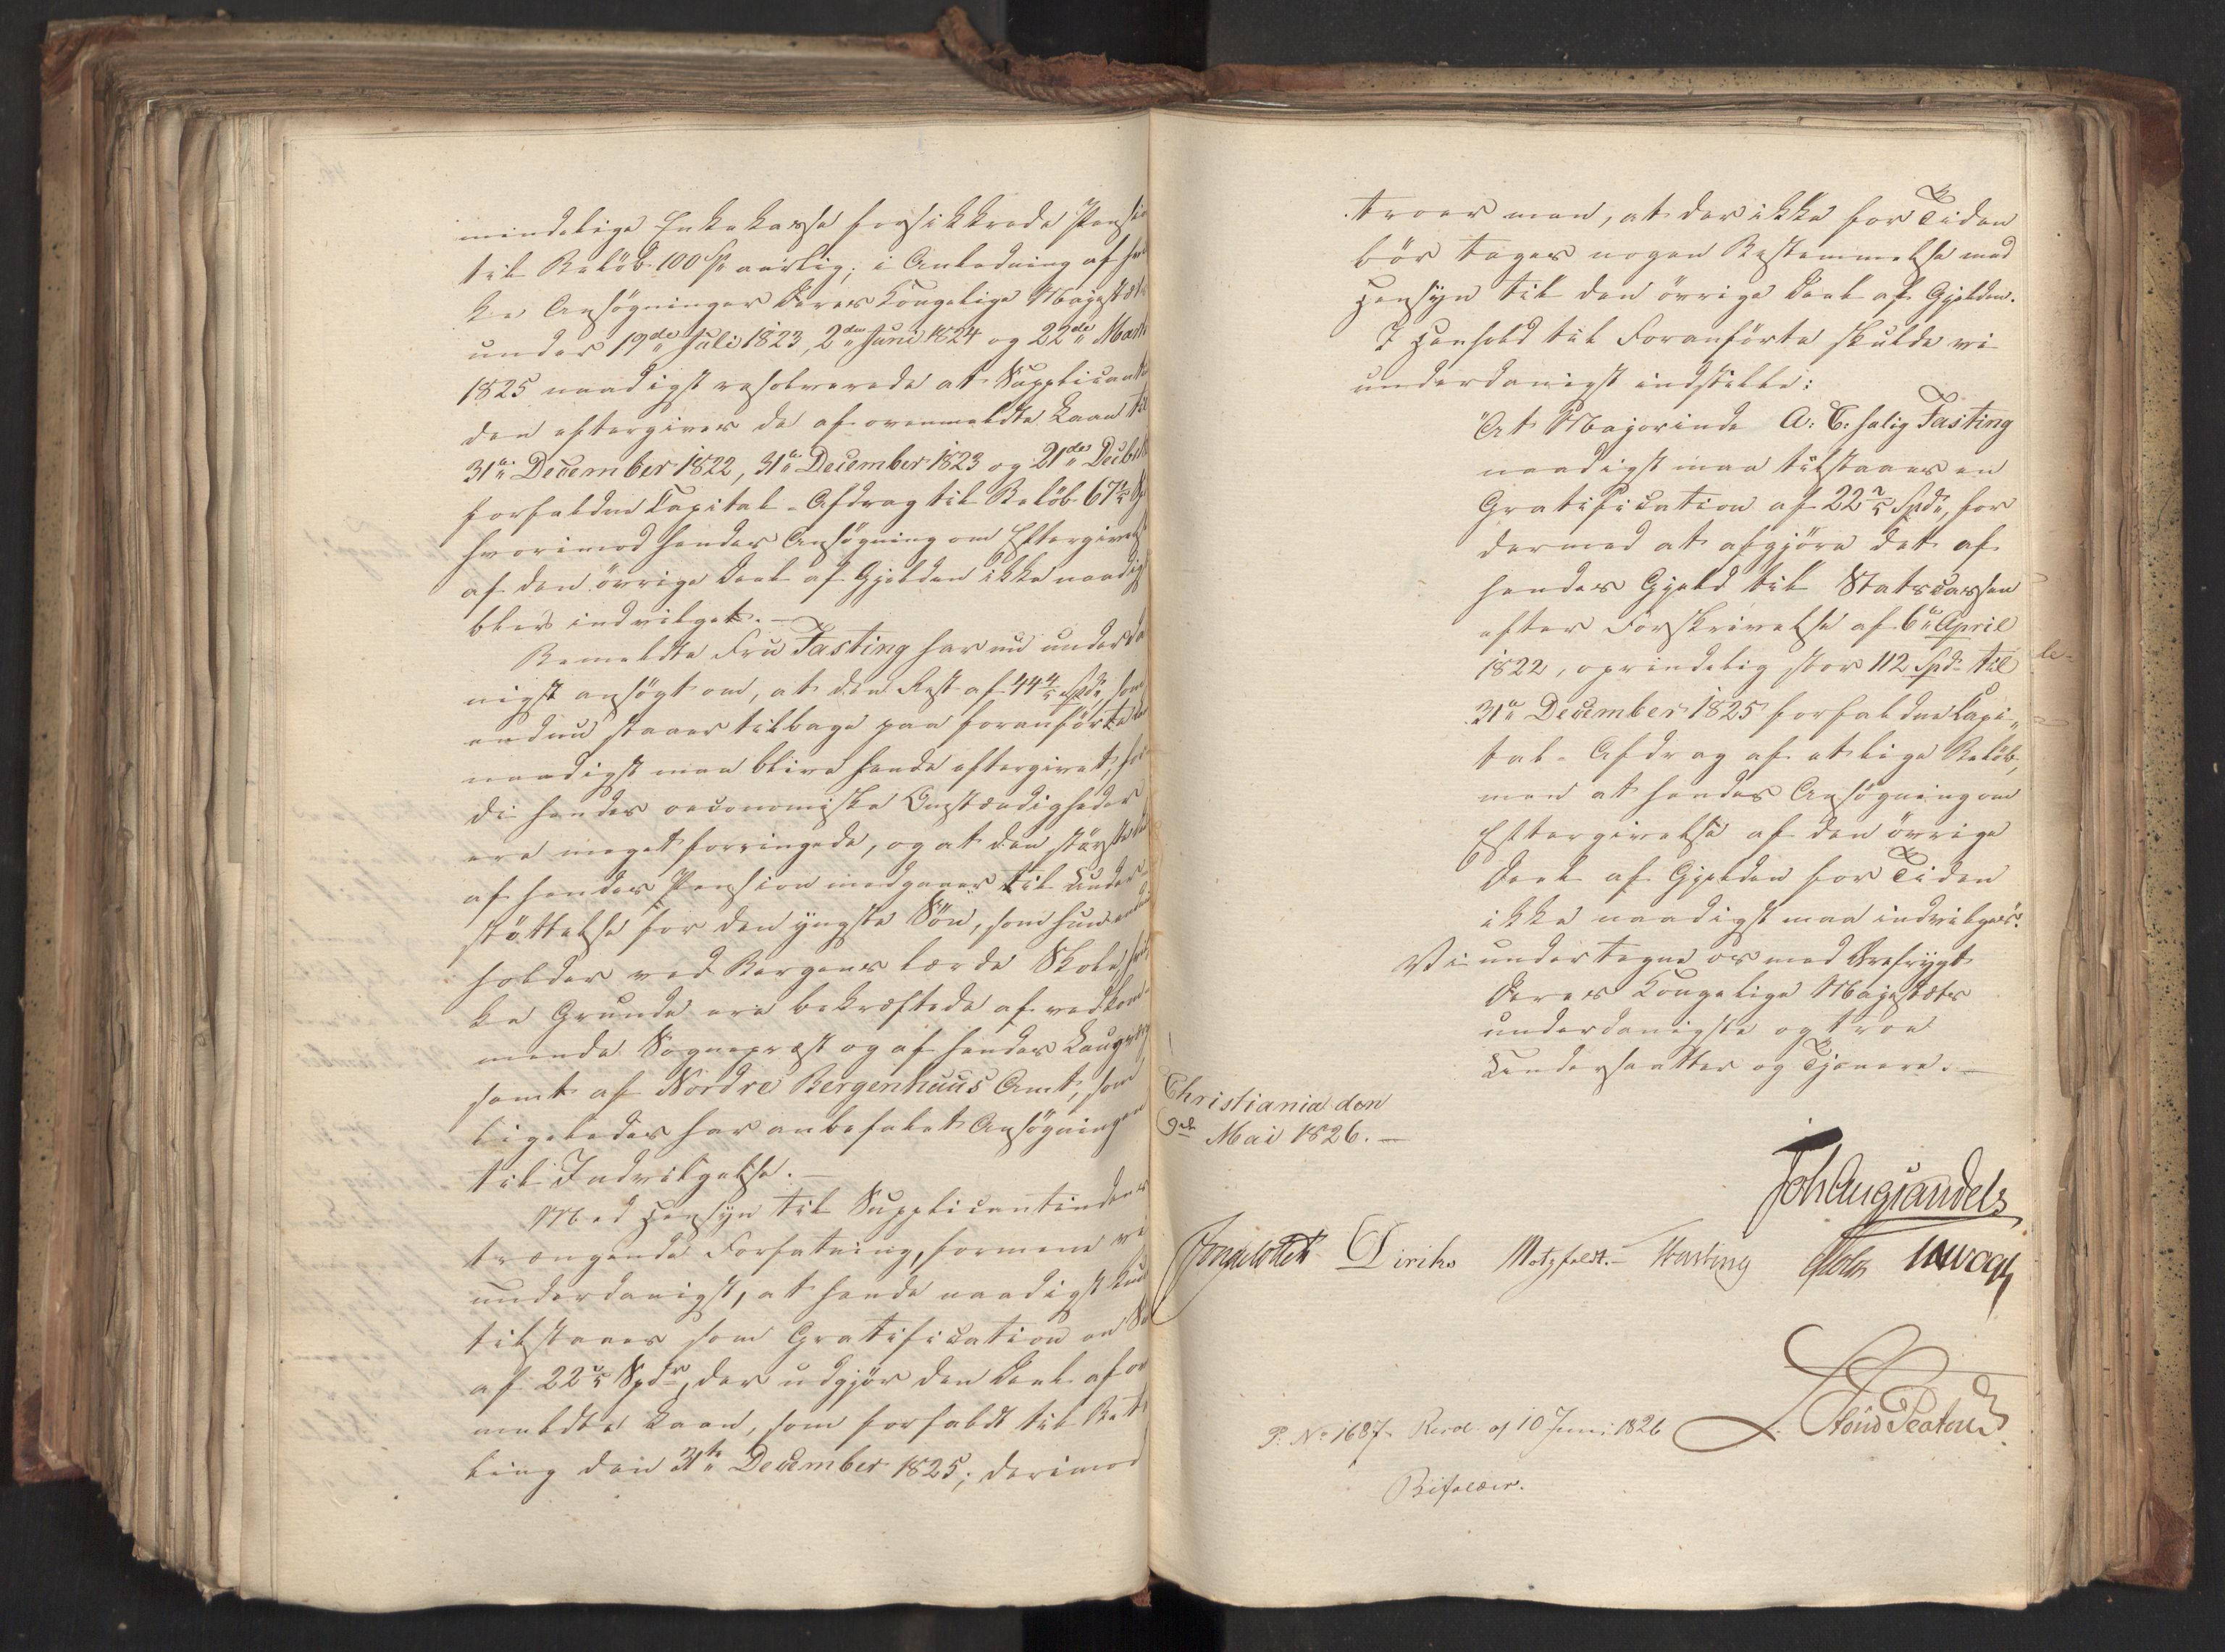 mindelige Enkekasse forsikkrede Pensi
til Beløb 100 Sp aarlig; i Anledning af hvil
ke Ansøgninger Deres Kongelige Majestæt
under 19de Juli 1823, 2den Juni 1824 og 22de Marts
1825 naadigst resolverede at Supplicantin
den eftergives de af ovenmeldte Laan til
31te December 1822, 31te December 1823 og 21de Decbr
forfaldne Capital-Afdrag til Beløb 67 1/5 Sp
hvorimod hendes Ansøgning om Eftergivelse
af den øvrige Deel af Gjelden ikke naadigst
blev indvilget.—
Bemeldte Frue Fasting har nu underda
nigst ansøgt om, at den Rest af 44 4/5 Spd, som
endnu staaer tilbage paa foranførte
naadigst maa blive hende eftergivet, for
di hendes oeconomiske Omstændigheder
ere meget forringede, og at den største Deel
af hendes Pension medgaaer til Under
støttelse for den yngste Søn, som hun
holder ved Bergens lærde Skole, hvil
ke Grunde ere bekræftede af vedkom-
mende Sognepræst og af hendes Laugværge
samt af Nordre Bergenhuus Amt, som
ligeledes har anbefalet Ansøgningen
til Indvilgelse.—
Med Hensyn til Supplicantindens
trængende Forfatning, formene vi
underdanigst, at hende naadigst kun
tilstaaes som Gratification en Su
af 22 2/5 Spdr, der udgjør den Deel af ov
meldte Laan, som forfaldt til Beta
ling den 31te December 1825; derimod
troer man, at der ikke for Tiden
bør tages nogen Bestemmelse med
Hensyn til den øvrige Deel af Gjelden.
I Henhold til Foranførte skulde vi
underdanigst indstille:
"At Majorinde A: C: salig Fasting
naadigst maa tilstaaes en
Gratification af 22 2/5 Spd, for
dermed at afgjøre det af
hendes Gjeld til Statscassen
efter Forskrivelse af 6te April
1822, oprindelig stor 112 Spd til
31te December 1825 forfaldne Capi-
tal-Afdrag af et lige Beløb,
men at hendes Ansøgning om
Eftergivelse af den øvrige
Deel af Gjelden for Tiden
ikke naadigst maa indvilges".
Vi undertegne os med Ærefrygt
Deres Kongelige Majestæts
underdanigste og troe
Undersaatter og Tjenere.—
Christiania den
9de Mai 1826.—
Joh Aug Sandels
Diriks Motzfeldt.— Fasting
P. No 1687. Resol. af 10 Juni 1826
Bifalder.